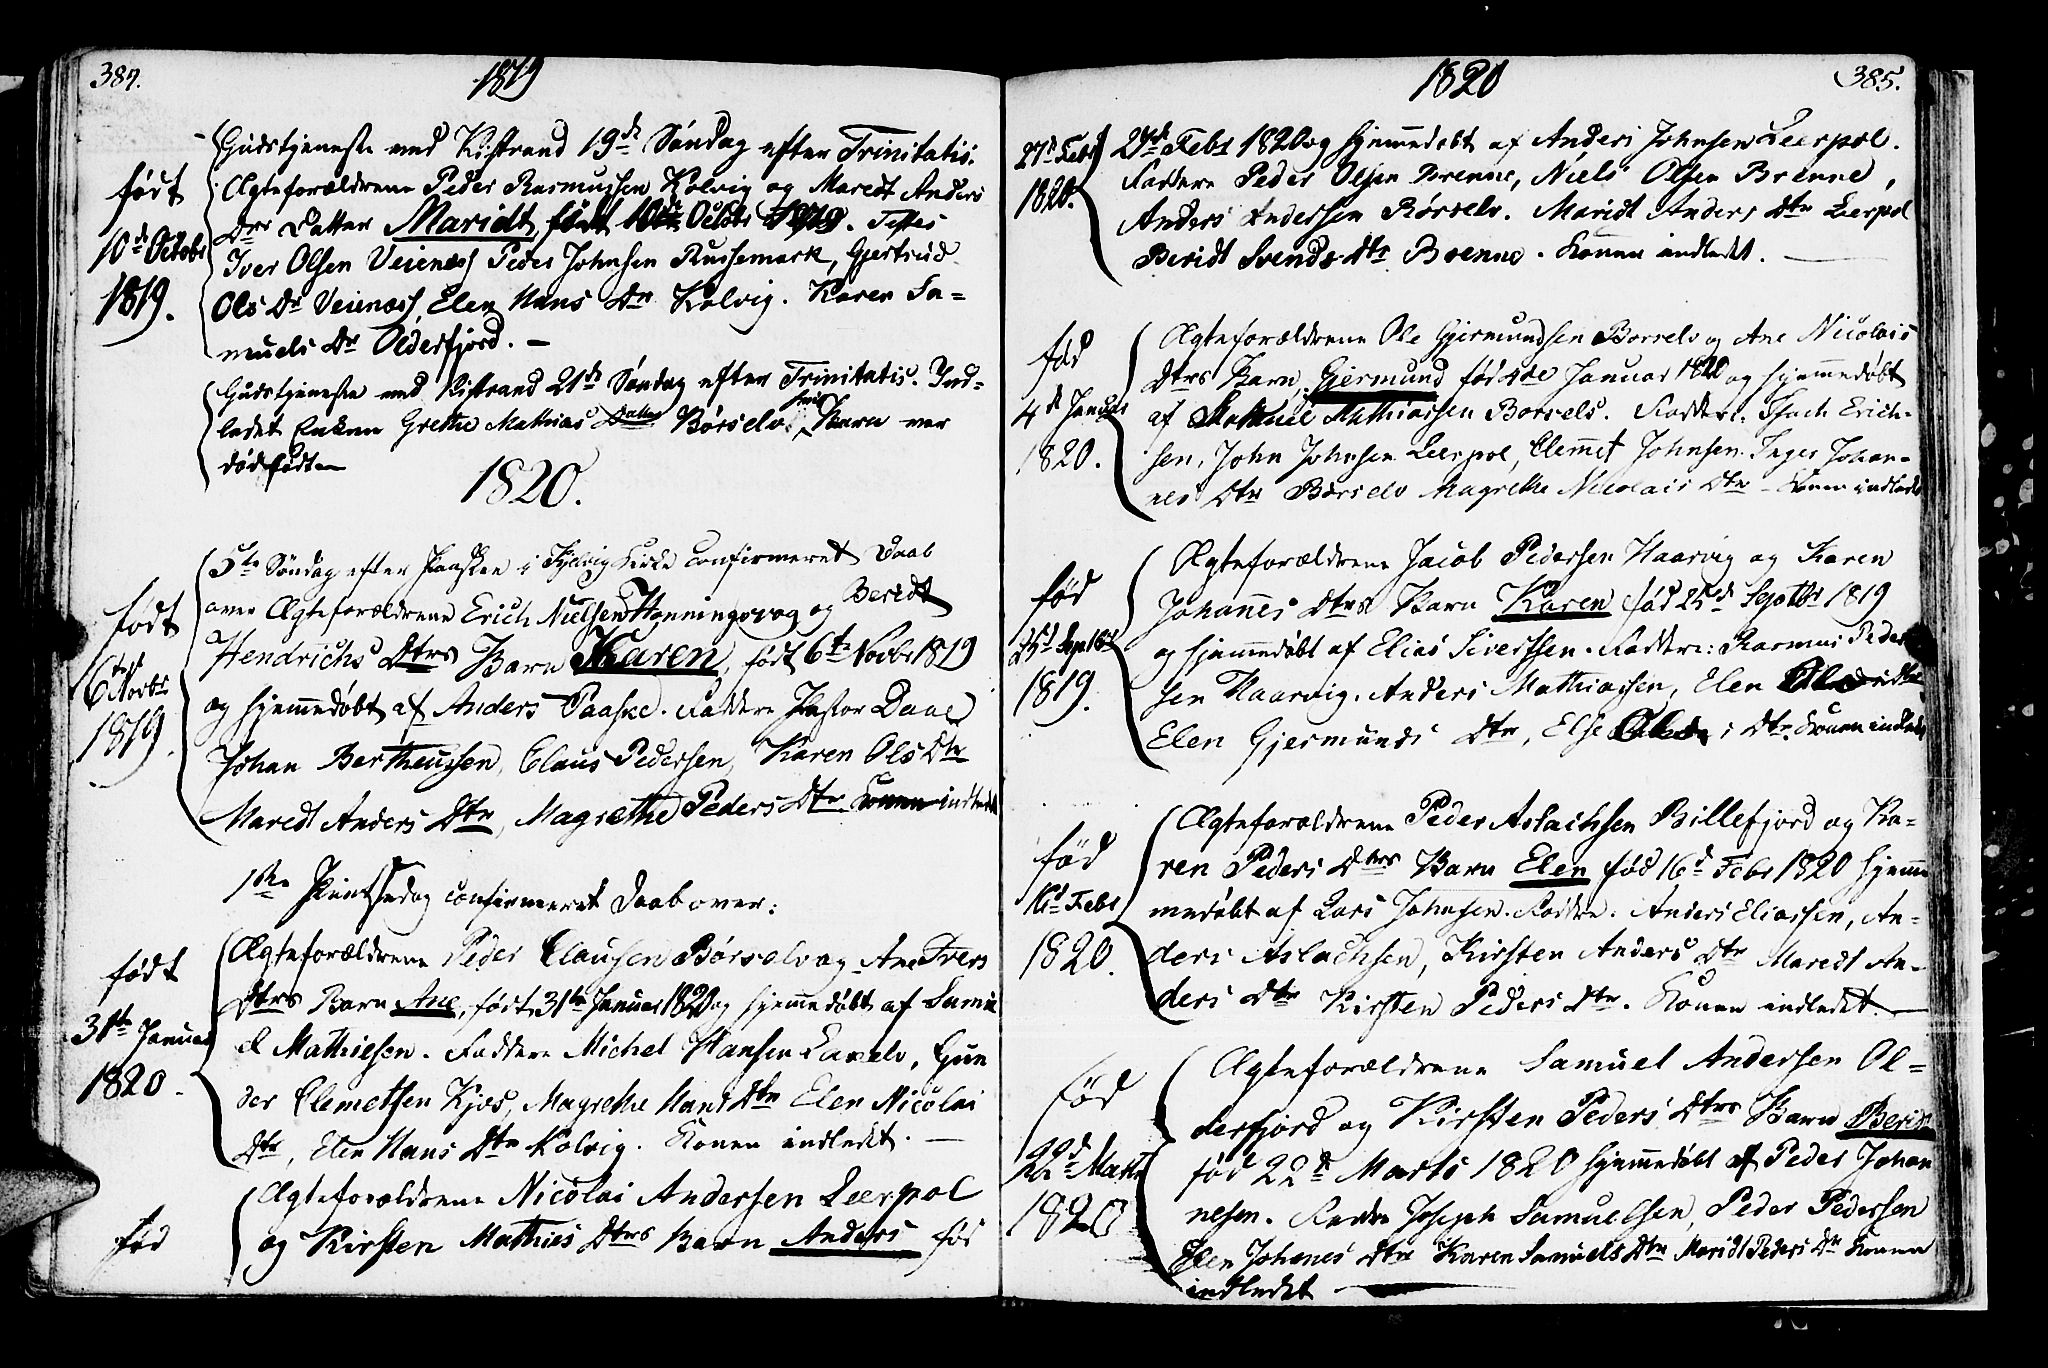 384.
1819
Gudstjeneste ved Kistrand 19de Søndag efter Trinitatis.
født
10de Octobr
1819.
Ægteforældrene Peder Rasmussen Kolvig og Maredt Anders
Dtrs Datter Maridt, født 10de Octobr 1819. Testes
Iver Olsen Veienæss Peder Johnsen Russemark, Gjertrud
Ols Dr Veienæss, Elen Hans Dtr Kolvig. Karen Sa=
muels Dr Olderfjord. —
Gudstjeneste ved Kistrand 21de Søndag efter Trinitatis. Ind=
ledet Enken Grethe Mathias Datter Børselv, hvis Barn var
dødfødt
1820.
5te Søndag efter Paasken i Kjelvig Kirke confirmeret Daab
født
6te Novbr
1819.
over Ægteforældrene Erich Nielsen Honningsvog og Beridt
Hendrichs Dtrs Barn Karen, født 6te Novbr 1819
og hjemmedøbt af Anders Paaske. Faddere Pastor Daae
Johan Bertheussen, Claus Pedersen, Karen Ols Dtr
Maredt Anders Dtr, Magrethe Peders Dtr. Konen indledet
1ste Pintsedag confirmeret Daab over:
født
31te Januar
1820.
Ægteforældrene Peder Clausen Børselv og Ane Ivers
Dtrs Barn Ane, født 31te Januar 1820 og hjemmedøbt af Samu
el Mathiesen. Faddere Michel Hansen Laxelv, Gun
der Clemetsen Kjæs, Magrethe Hans Dtr Elen Nicolai
Dtr, Elen Hans Dtr Kolvig. Konen indledet. —
fød
Ægteforældrene Nicolai Andersen Leerpol
og Kirsten Mathies Dtrs Barn Anders fød
1820
385.
27de Febr
1820.
27de Febr 1820 og hjemmedøbt af Anders Johnsen Leerpol.
Faddere Peder Olsen Brenne, Niels Olsen Brenne,
Anders Andersen Børselv. Maridt Anders Dtr Leerpol
Beridt Svends Dtr Brenne. Konen indledet. —
fød
4de Januar
1820.
Ægteforældrene Ole Gjermundsen Børselv og Ane Nicolais
Dtrs Barn, Gjermund fød 4de Januar 1820 og hjemmedøbt
af Samuel Mathiassen Børselv. Faddere: Isach Erich-
sen, John Johnsen Leerpol, Clemmet Johnsen Inger Johan-
nes Dtr Børselv Magrethe Nicolais Dtr – Konen indledet
fød
25de Septbr
1819.
Ægteforældrene Jacob Pedersen Haarvig og Karen
Johannes Dtrs Barn Karen fød 25de Septbr 1819
og hjemmedøbt af Elias Siverssen. Faddere: Rasmus Peder
sen Haarvig. Anders Mathiassen, Elen
Elen Gjermunds Dtr, Else Dtr. Konen indledet
fød
16de Febr
1820.
Ægteforældrene Peder Aslachsen Billefjord og Ka=
ren Peders Dtrs Barn Elen fød 16de Febr 1820 hjem
medøbt af Lars Johnsen. Faddere. Anders Eliassen, An-
ders Aslachsen, Kirsten Anders Dtr Maredt An-
ders Dtr Kirsten Peders Dtr. Konen indledet. —
fød
22de Marts
1820
Ægteforældrene Samuel Andersen Ol=
derfjord og Kirsten Peders Dtrs Barn Beridt
fød 22de Marts 1820 hjemmedøbt af Peder Johan
nesen. Faddre Joseph Samuelsen, Peder Pedersen
Elen Johanes Dtr Karen Samuels Dtr Maridt Peders Dtr Konen
indledet —